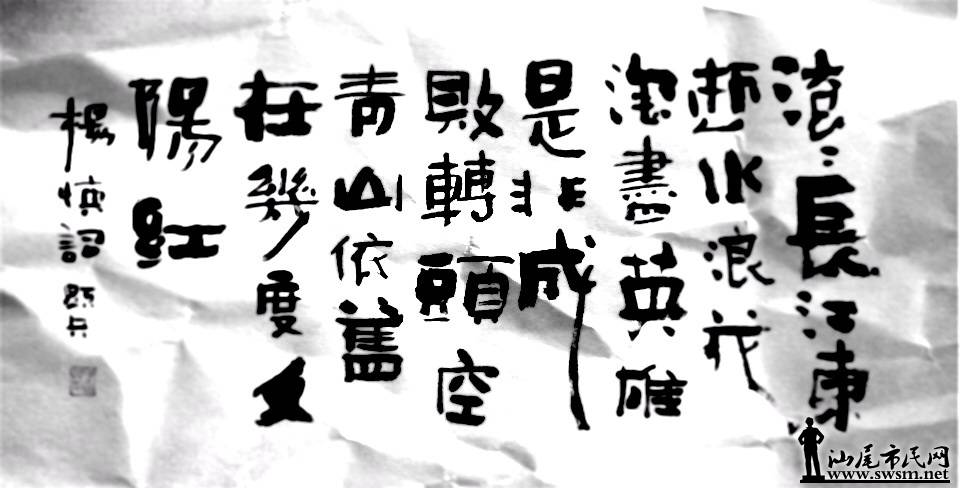 滚〻長江東
逝水浪花
淘盡英雄
是非成
敗轉頭空
青山依舊
在幾度夕
陽紅
楊慎詞
汕尾市民网
www.swsm.net